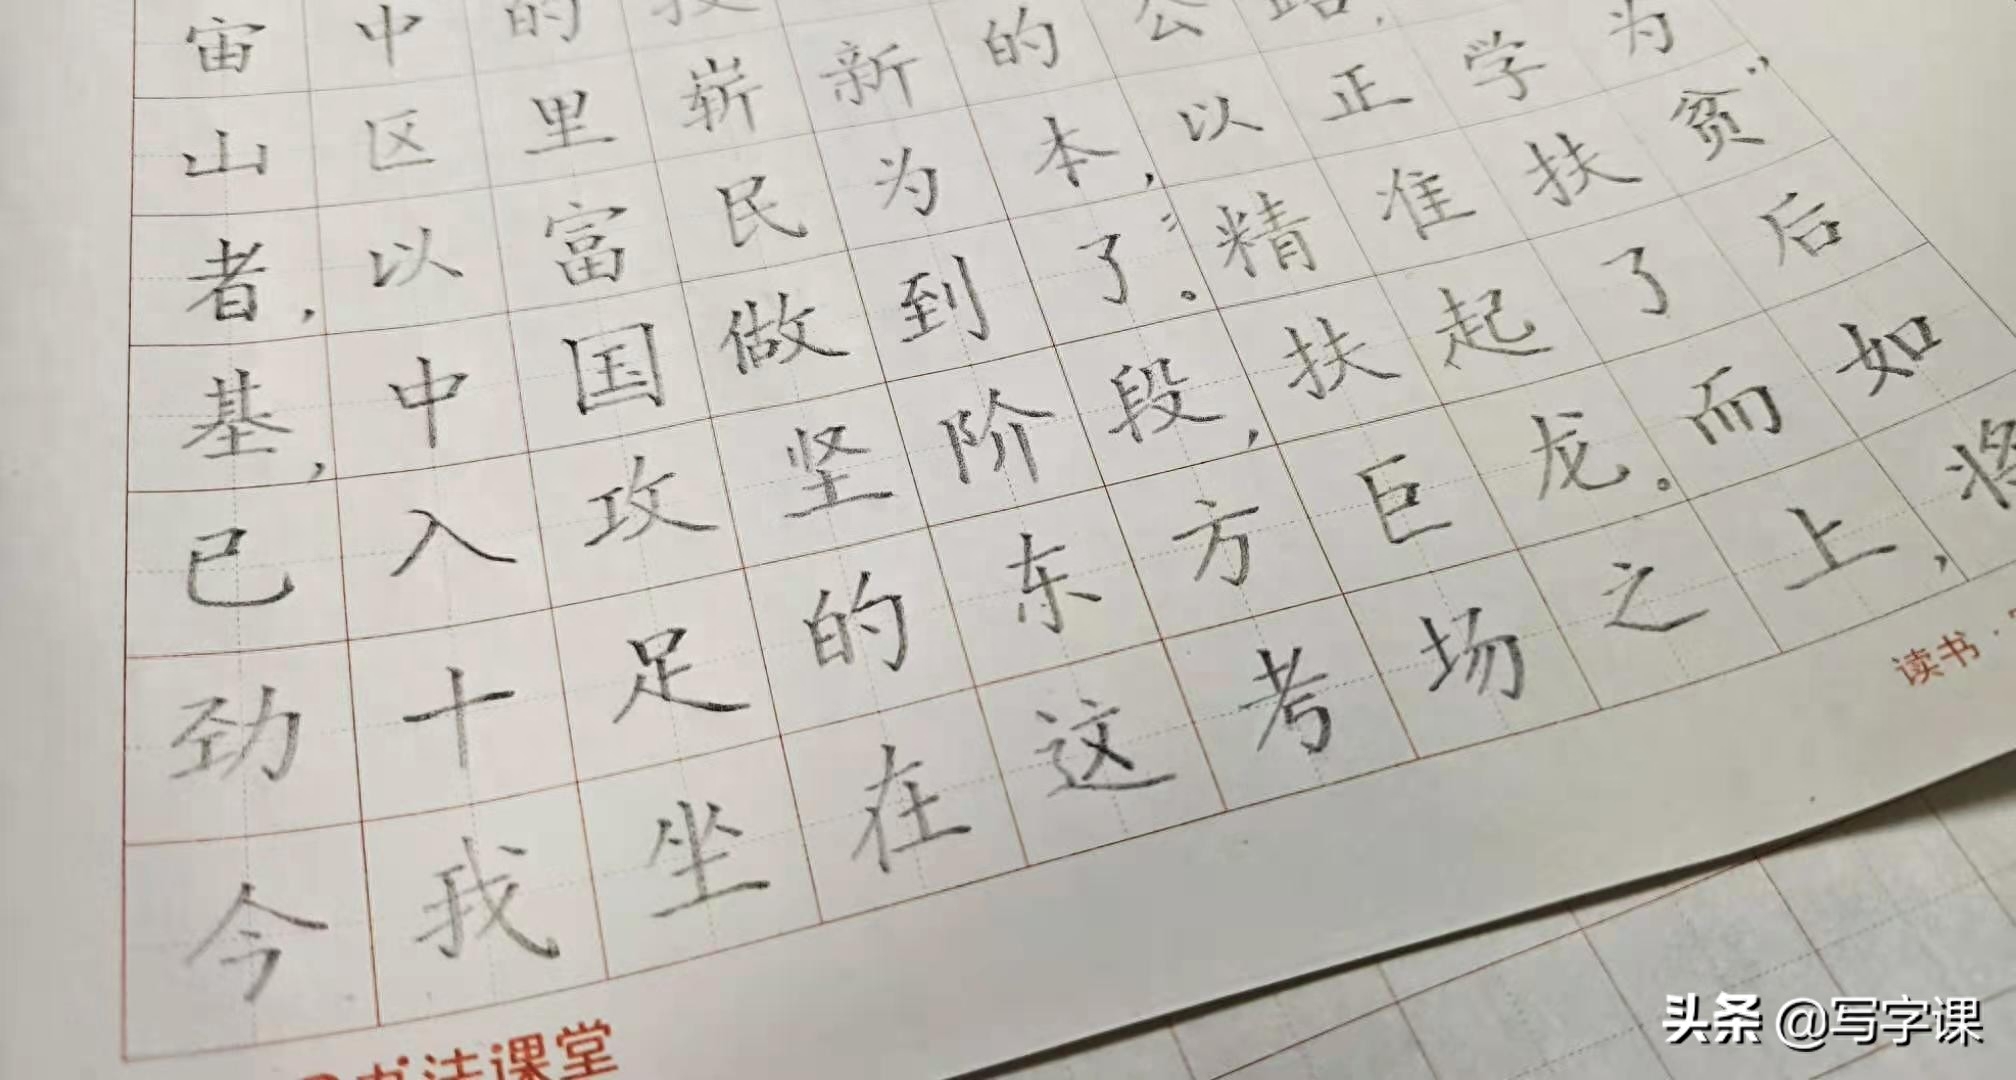 宙中的
山区里崭新的公路.
者,以富民为本,以正学为
基,中国做到了。“精准扶贫”
已入攻坚阶段,扶起了后
劲十足的东方巨龙。而如
今我坐在这考场之上,将
读书·
书法课堂
头条 @写字课